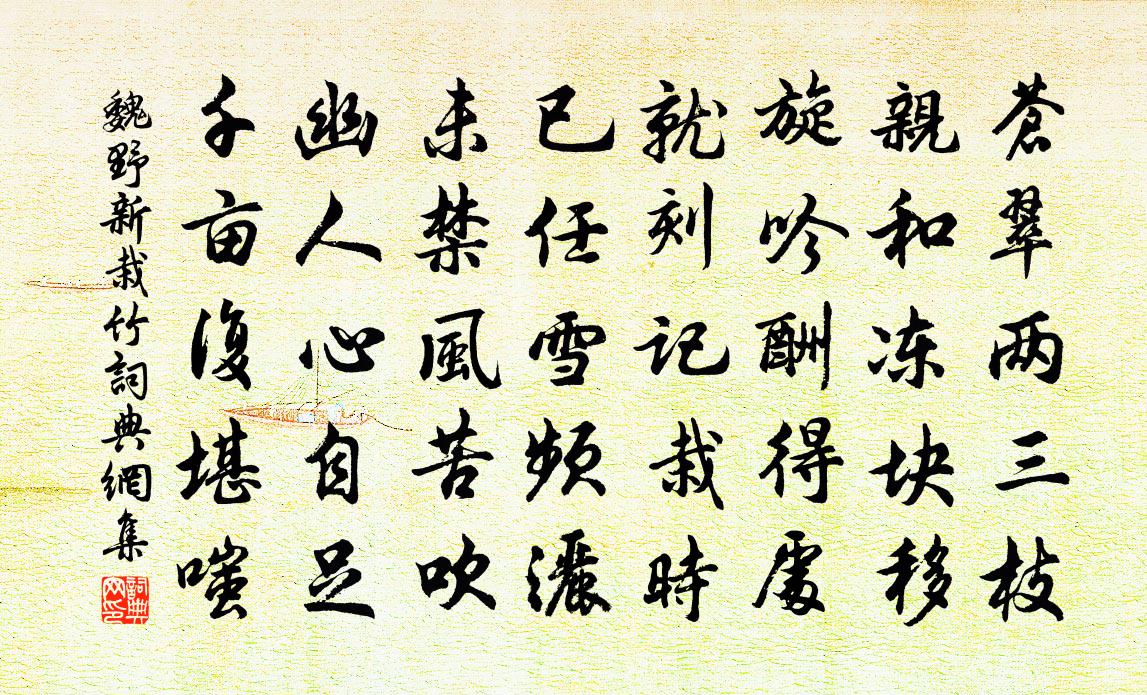 蒼翠两三枝
親和冻块移
旋吟酬得處
就刻记栽時
已任雪频灑
未禁風苦吹
幽人心自足
千亩復堪嗤
魏野新栽竹詞典網集
詞典网印